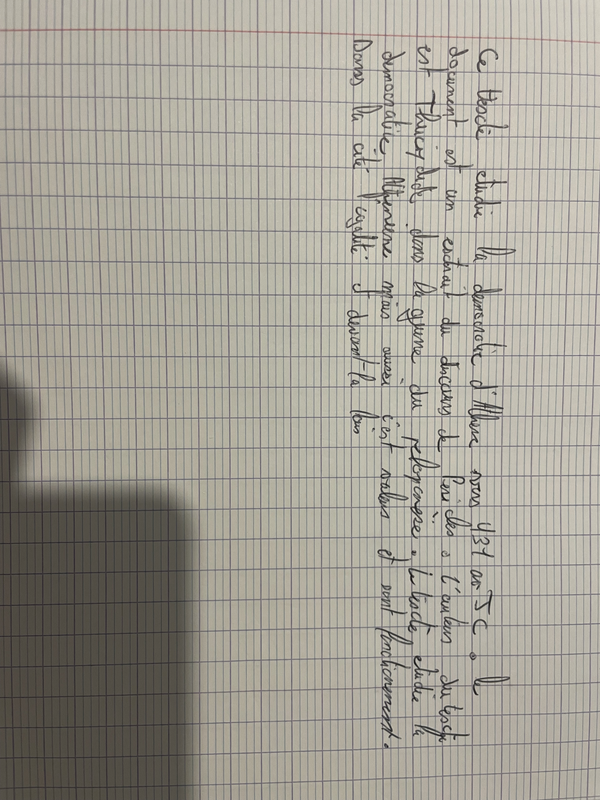 Ce texte etudie la democratie d'Athene vers 431 av JC. le
document est un extrait du discours de Periclès. L'auteur du texte
est Thucydide, dans la guerre du peloponèse. Le texte, etudie la
democratie, Athenienne mais aussi c'est valeurs et sont fonctionement.
Dans la cité egalité et devant-la lois